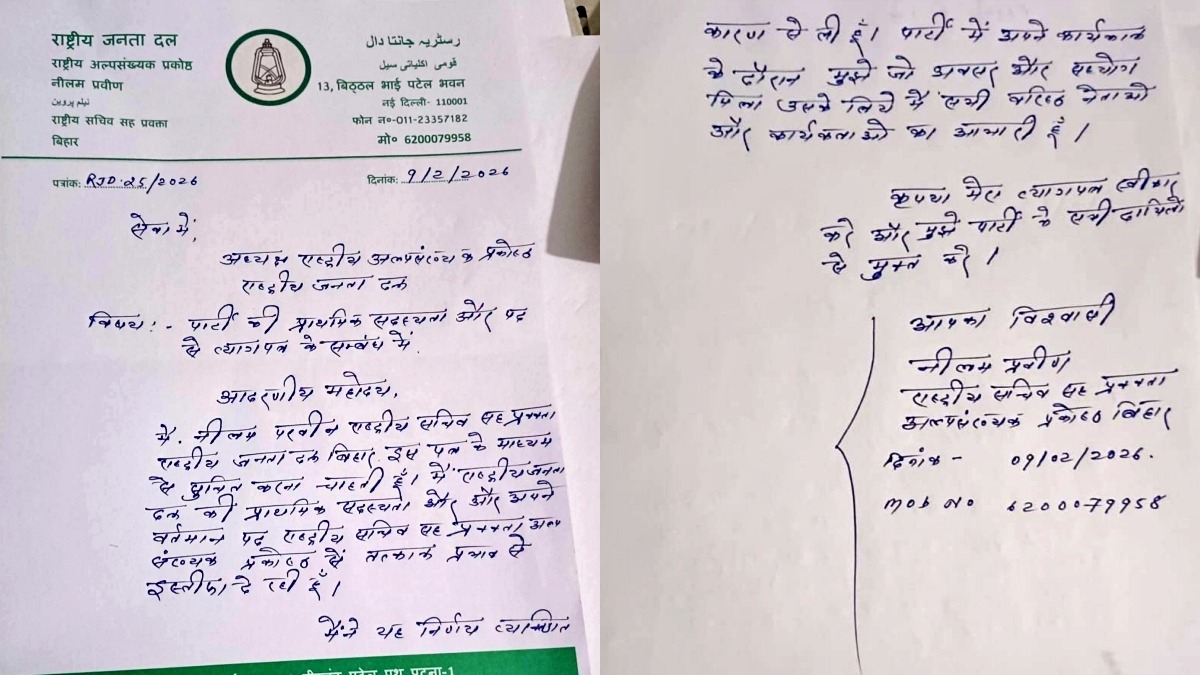 राष्ट्रीय जनता दल
राष्ट्रीय अल्पसंख्यक प्रकोष्ठ
नीलम प्रवीण
نیلم پروین
राष्ट्रीय सचिव सह प्रवक्ता
बिहार
رسٹریہ جانتا دال
قومی اکلیاتی سیل
13, बिठ्ठल भाई पटेल भवन
नई दिल्ली- 110001
फोन न०-011-23357182
मो० 6200079958
पत्रांक: RJD.25/2026
दिनांक: 9/2/2026
सेवा में,
अध्यक्ष राष्ट्रीय अल्पसंख्यक प्रकोष्ठ
राष्ट्रीय जनता दल
विषय:- पार्टी की प्राथमिक सदस्यता और पद
से त्यागपत्र के सम्बंध में.
आदरणीय महोदय,
मैं. नीलम परवीन राष्ट्रीय सचिव सह प्रवक्ता
राष्ट्रीय जनता दल बिहार. इस पत्र के माध्यम
से सुचित करना चाहती हूँ। मैं राष्ट्रीय जनता
दल की प्राथमिक सदस्यता और और अपने
वर्तमान पद राष्ट्रीय सचिव सह प्रवक्ता अल्प
संख्यक प्रकोष्ठ से तत्काल प्रभाव से
इस्तीफा दे रही हूँ।
मैंने यह निर्णय व्यक्तिगत
पटेल पथ पटना-1
कारण से ली हूँ। पार्टी में अपने कार्यकाल
के दौरान मुझे जो अवसर और सहयोग
मिला उसके लिये मैं सभी वरिष्ठ नेताओ
और कार्यकताओ का आभारी हूँ।
कृपया मेरा त्यागपत्र स्वीकार
करे और मुझे पार्टी के सभी दायित्वो
से मुक्त करे।
आपका विश्वासी
नीलम प्रवीण
राष्ट्रीय सचिव सह प्रवक्ता
अल्पसंख्यक प्रकोष्ठ बिहार
दिनांक - 09/02/2026.
mob No 6200079958